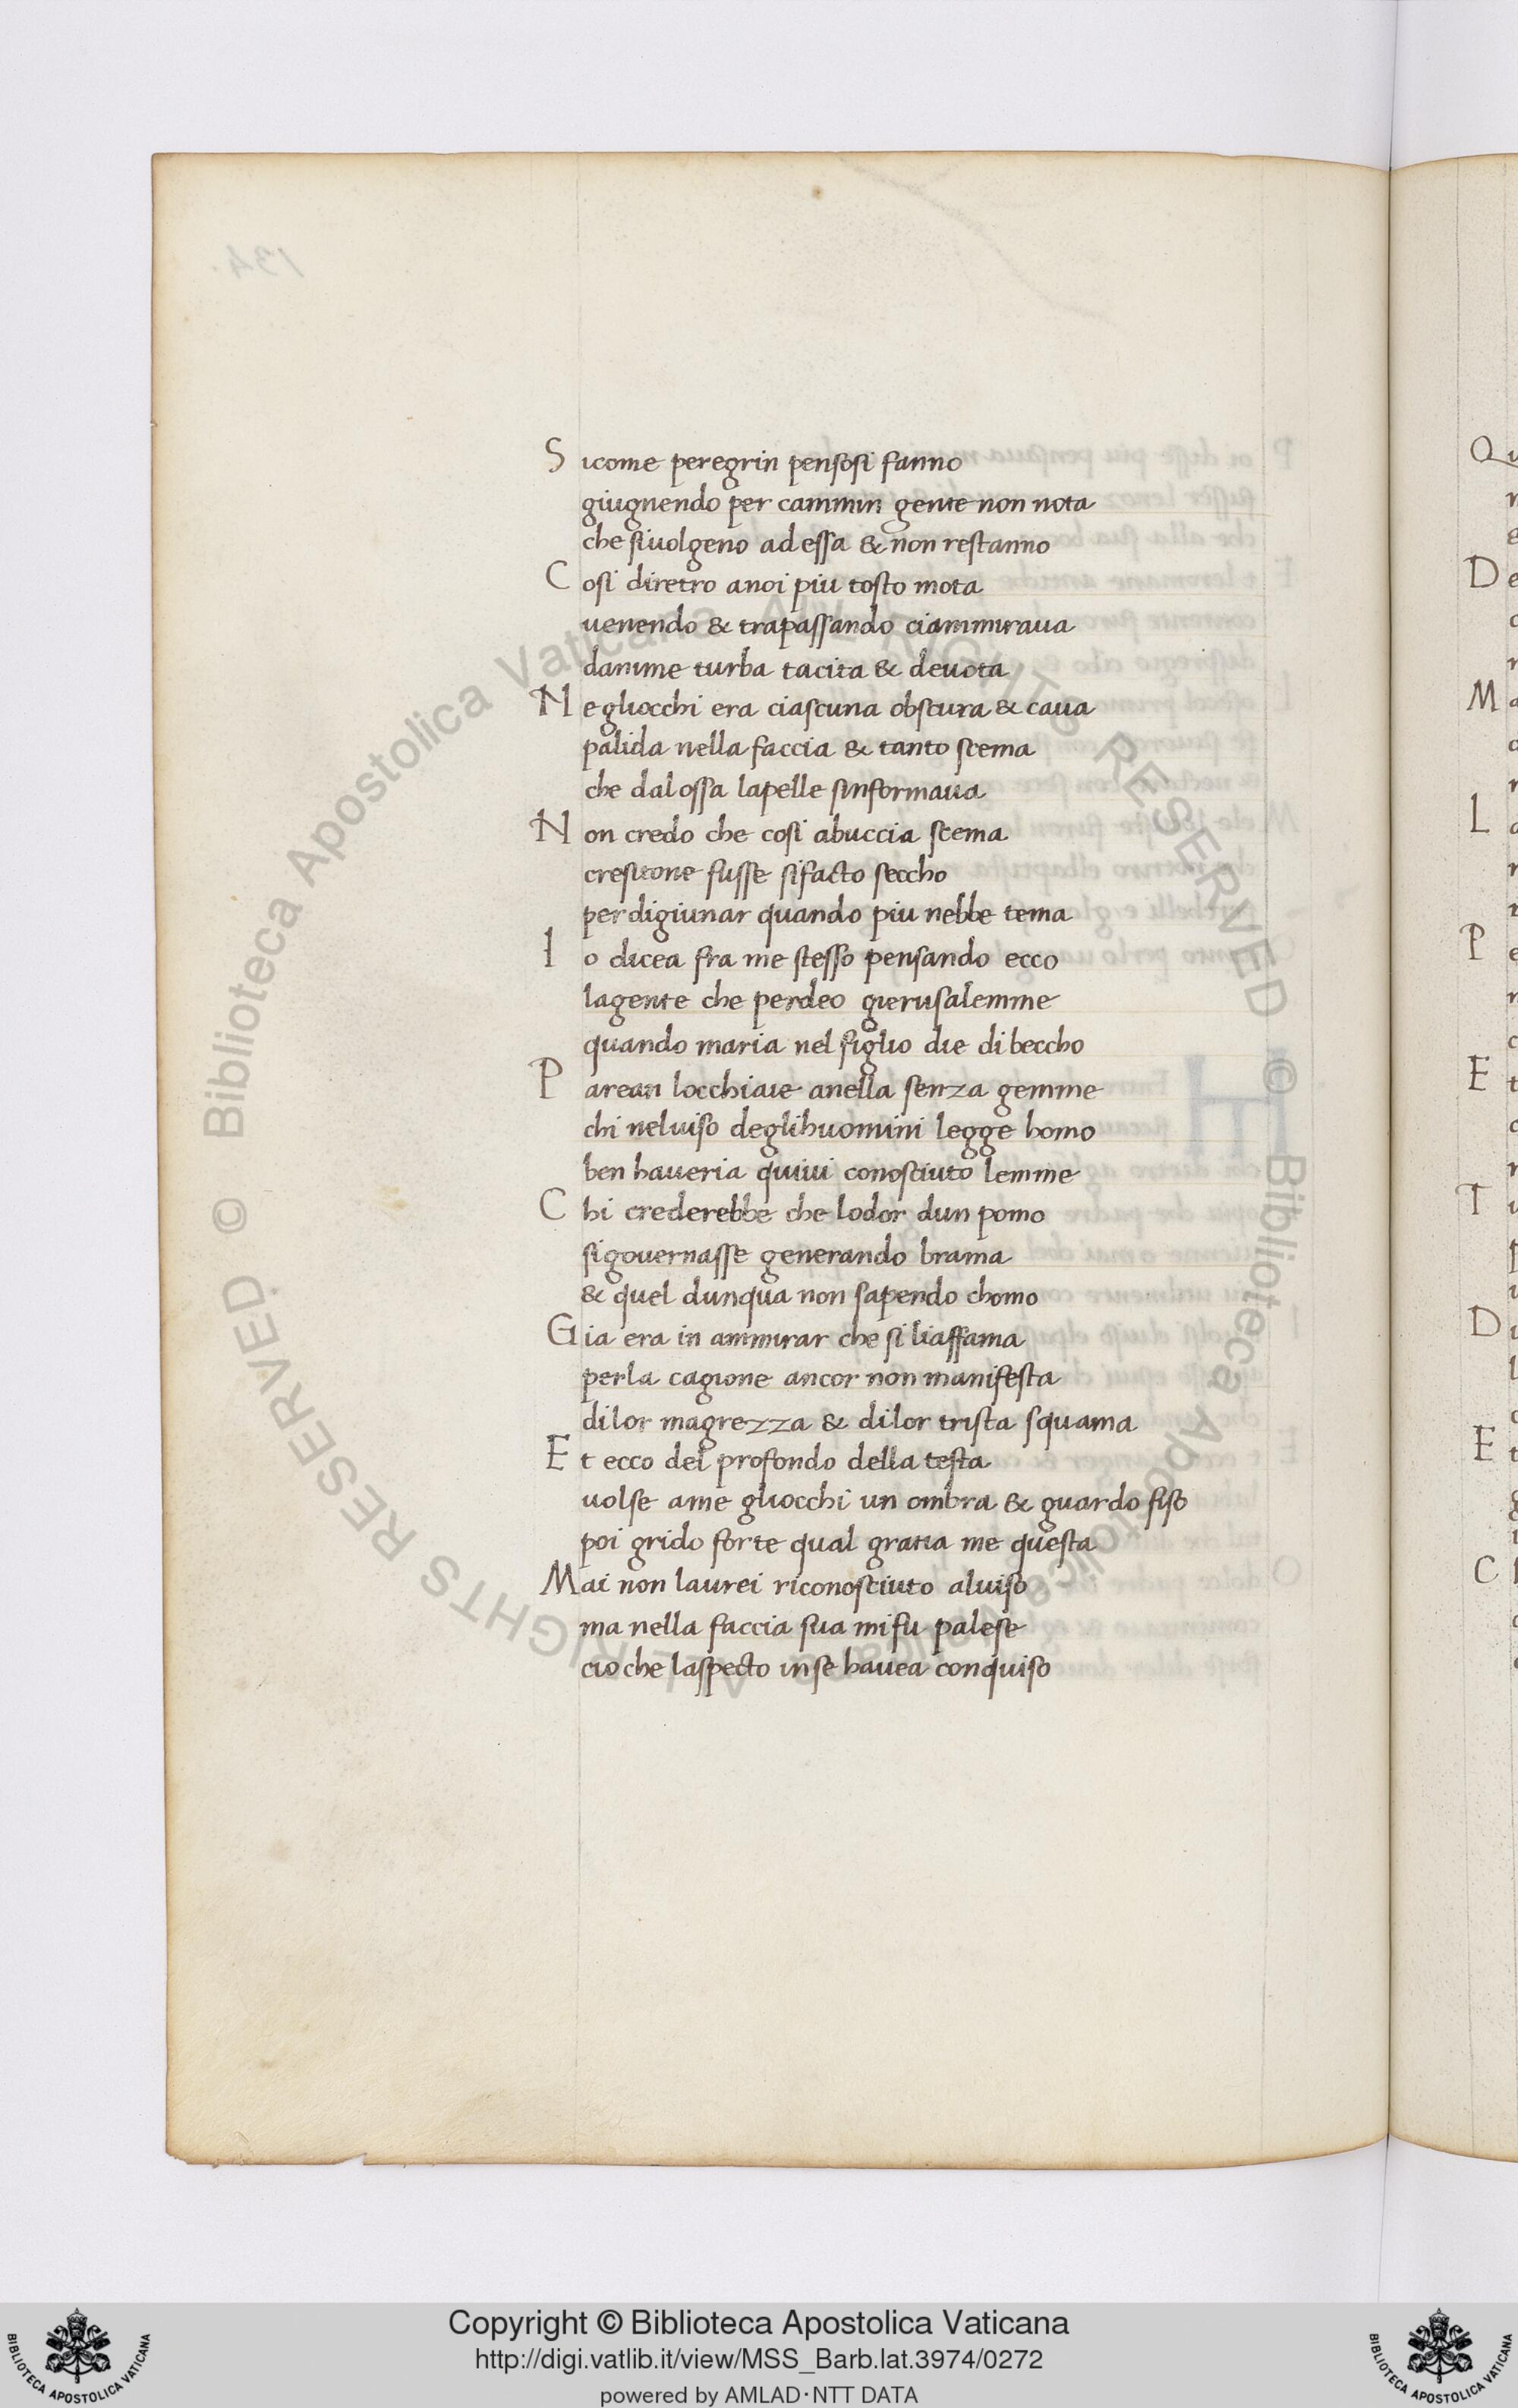 Sicome peregrin pensosi fanno
giugnendo per cammin gente non nota
che sivolgeno ad essa & non restanno
Cosi diretro anoi piu tosto mota
venendo & trapassando ciammirava
damme turba tacita & devota
Negliocchi era ciascuna obscura & cava
palida nella faccia & tanto scema
che dal ossa lapelle sinformava
Non credo che cosi abuccia stema
cresitone fusse sifacto seccho
per digiunar quando piu nebbe tema
Io dicea fra me stesso pensando ecco
lagente che perdeo gierusalemme
quando maria nel figlio die dibeccho
Parean locchiaie anella senza gemme
chi nelviso deglihuomini legge homo
ben haveria quivi conosciuto lemme
Chi crederebbe che lodor dun pomo
sigovernasse generando brama
& quel dunqua non sapendo chomo
Gia era in ammirar che si liaffama
perla cagione ancor non manifesta
dilor magrezza & dilor trista squama
Et ecco del profondo della testa
volse ame gliocchi un ombra & guardo fiso
poi grido forte qual gratia me questa
Mai non laurei riconosciuto alviso
ma nella faccia sua mifu palese
cio che laspecto inse havea conquiso
Copyright © Biblioteca Apostolica Vaticana
http://digi.vatlib.it/view/MSS_Barb.lat.3974/0272
powered by AMLAD·NTT DATA
BIBLIOTECA APOSTOLICA VATICANA
BIBLIOTECA APOSTOLICA VATICANA
© Biblioteca Apostolica Vaticana ALL RIGHTS RESERVED
© Biblioteca Apostolica Vaticana ALL RIGHTS RESERVED